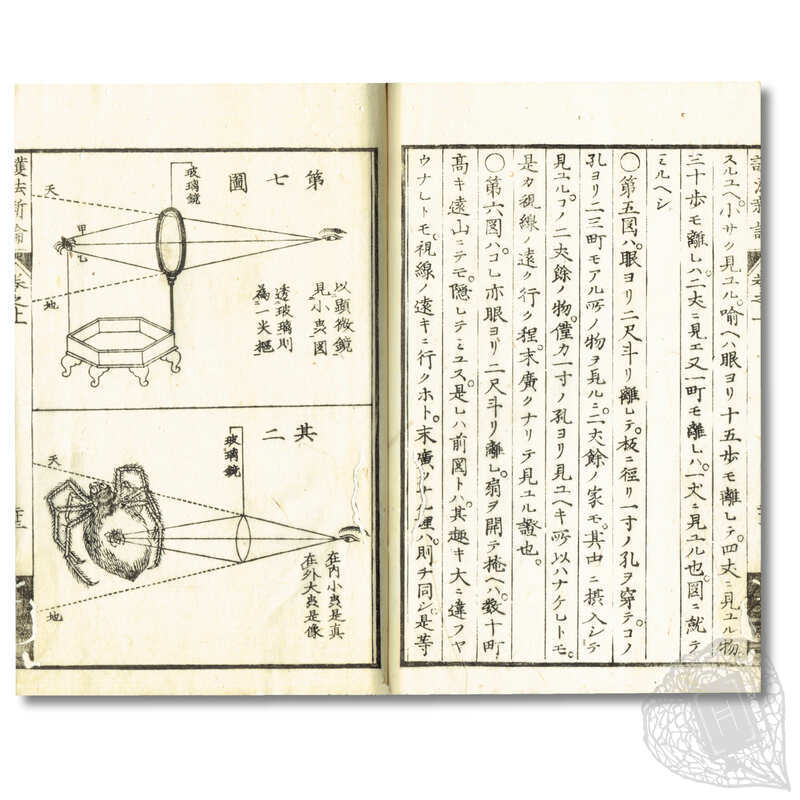 スルユヘ。小サク見ユル。喩ヘハ眼ヨリ十五歩モ離レテ。四丈ニ見ユル物
三十歩モ離レハ。二丈ニ見エ又一町モ離レハ。一丈ニ見ユル也。図ニ就テ
ミルヘシ
○第五図ハ。眼ヨリ二尺斗リ離レテ。板ニ径リ一寸ノ孔ヲ穿テ。コノ
孔ヨリ二三町モアル所ノ物ヲ見ルニ。二丈餘ノ家モ。其由ニ摂入シテ
見ユル。コノ二丈餘ノ物。僅カ一寸ノ孔ヨリ見ユヘキ所以ハナケレトモ。
是カ視線ノ遠ク行ク程。末廣クナリテ見ユル證也。
○第六図ハ。コレ亦眼ヨリ二尺斗リ離レ。扇ヲ開テ掩ヘハ。数十町
高キ遠山ニテモ。隠レテミユス。是レハ前図トハ。其趣キ大ニ違フヤ
ウナレトモ。視線ノ遠キニ行クホト。末廣ウナル理ハ。則チ同シ。是等
第七圖
玻璃鏡
天
甲
乙
地
以顕微鏡
見小虫図
透玻璃則
為一尖摳
其二
玻璃鏡
天
地
在内小虫是真
在外大虫是像
護法新論
巻之上
H